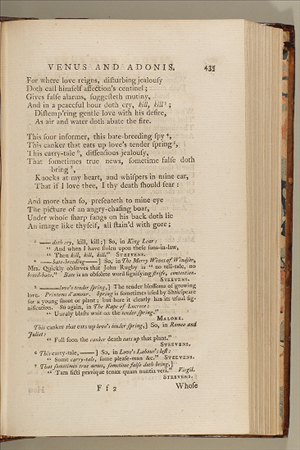 VENUS AND ADONIS. 435
For where love reigns, disturbing jealousy
Doth call himself affection's centinel;
Gives false alarms, suggesteth mutiny,
And in a peaceful hour doth cry, kill, kill;
Distemp'ring gentle love with his desire,
As air and water doth abate the fire.
This sour informer, this bate-breeding spy,
This canker that eats up love's tender spring,
This carry-tale, dissentious jealousy,
That sometimes true news, sometime false doth
bring,
Knocks at my heart, and whispers in mine ear,
That if I love thee, I thy death should fear:
And more than so, presenteth to mine eye
The picture of an angry-chafing boar,
Under whose sharp fangs on his back doth lie
An image like thyself, all stain'd with gore;
— doth cry, kill, kill;] So, in King Lear:
" And when I have stolen upon these son-in-law,
" Then kill, kill, kill." STEEVENS.
— bate-breeding —] So, in The Merry Wives of Windsor,
Mrs. Quickly observes that John Rugby is " no tell-tale, no
breed-bate." Bate is an obsolete word signifying strife, contention.
STEEVENS.
— love's tender spring,] The tender blossoms of growing
love. Printems d'amour. Spring is sometimes used by Shakspeare
for a young shoot or plant; but here it clearly has its usual sig-
nification. So again, in The Rape of Lucrece:
" Unruly blasts wait on the tender spring."
MALONE.
This canker that eats up love's tender spring,] So, in Romeo and
Juliet:
" Full soon the canker death eats up that plant."
STEEVENS.
This carry-tale, —] So, in Love's Labour's lost:
" Some carry-tale, some please-man &c." STEEVENS.
That sometimes true news, sometime false doth bring,]
" Tam ficti pravique tenax quam nuntia veri." Virgil.
STEEVENS.
F f 2 Whose